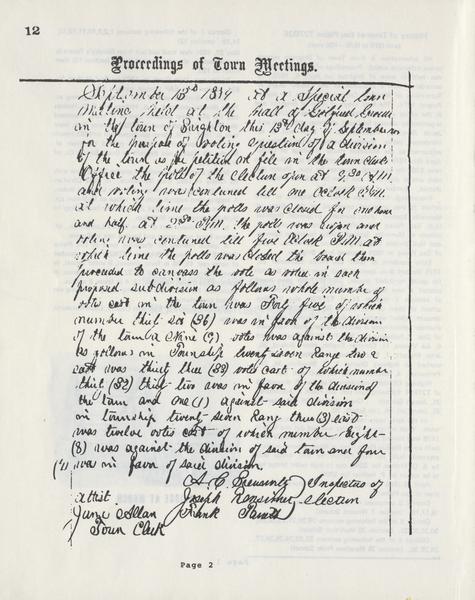 12
Proceedings of Town Meetings.
September 13th 1879 at a Special Town
Meeting held at the Hall of
in the town of this 13th day of September
for the purpose of voting Question of a division
of the town as pr petition on file in the town clerks
Office the polls of the Election open at 9.30 A.M.
and voting was continued till one Oclock P.M.
at which time the polls was closed for one hour
and half. at 2.30 P.M. the polls was open and
voting was continued till five Oclock P.M. at
which time the polls was closed the board then
proceeded to canvass the vote as voted in each
proposed subdivision as follows whole number of
votes cast in the town was Forty five of which
number thirt six (36) was in favor of the division
of the town & Nine (9) votes was against the division
as follows in Township twenty seven Range two
east was thirt three (33) votes cast of which number
thirt (32) thirt two was in favor of the division of
the town and one (1) against said division
in township twenty seven Rang three (3) east
was twelve votes cast of which number Eight-
(8) was against the division of said town and four
(4) was in favor of said division.
A. C. Inspectors of
attest Joseph Election
Allan Frank
Town Clerk
Page 2